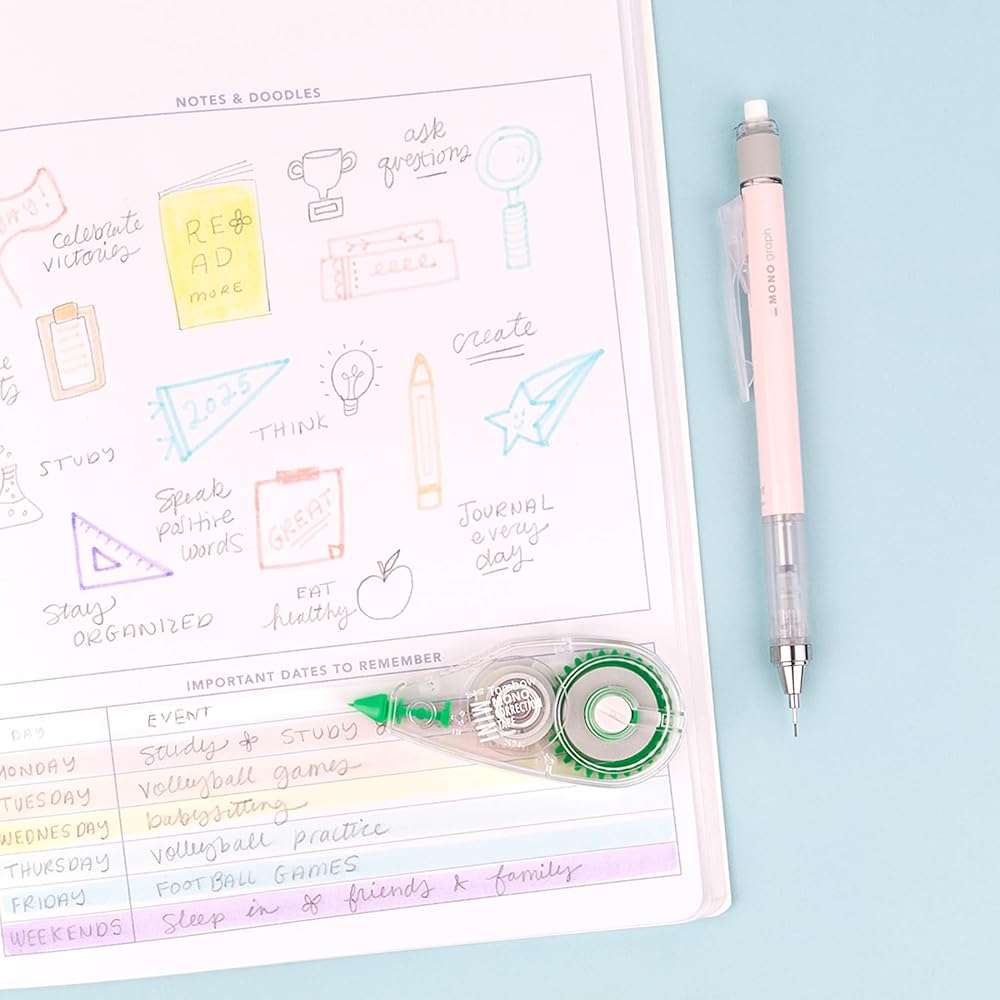 NOTES & DOODLES
ask
questions
celebrate
victories
READ
MORE
create
2025
THINK
STUDY
Speak
positive
words
GREAT
JOURNAL
every
day
EAT
healthy
Stay
ORGANIZED
— MONO graph
IMPORTANT DATES TO REMEMBER
DAY EVENT
MONDAY Study & STUDY
TUESDAY volleyball games
WEDNESDAY babysitting
THURSDAY volleyball practice
FRIDAY FOOTBALL GAMES
WEEKENDS Sleep in & friends & family
Tombow
MONO
MINI